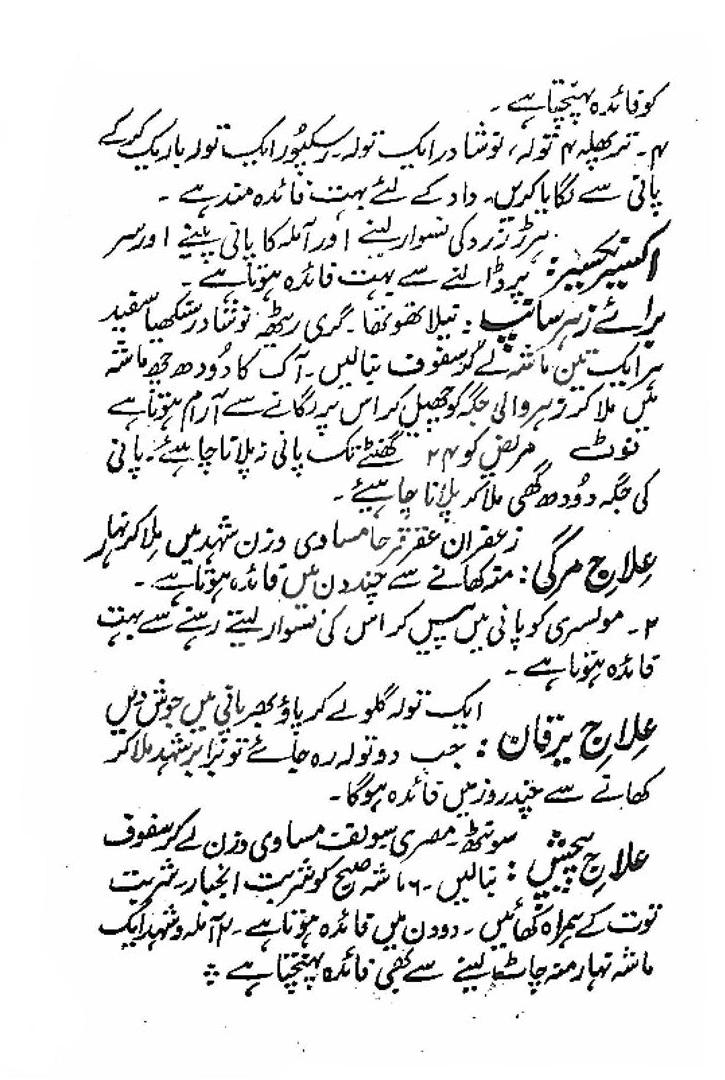 کو فائدہ پہنچتا ہے ۔
۴۔ تر پھلہ ۴ تولہ، نوشادر ایک تولہ۔ رسکپور ایک تولہ باریک کر کے
پانی سے لگایا کریں۔ داد کے لئے بہت فائدہ مند ہے ۔
اکسیر نکسیر: ہڑڑ زرد کی نسوار لینے اور آملہ کا پانی پینے اور سر
پر ڈالنے سے بہت فائدہ ہوتا ہے ۔
برائے زہر سانپ: نیلا تھوتھا۔ گری ریٹھہ نوشادر سنکھیا سفید
ہر ایک تین ماشہ لے کر سفوف بنالیں۔ آک کا دودھ چھ ماشہ
میں ملا کر زہر والی جگہ کو چھیل کر اس پر لگانے سے آرام ہوتا ہے
نوٹ مریض کو ۲۴ گھنٹے تک پانی نہ پلانا چاہئے۔ پانی
کی جگہ دودھ گھی ملا کر پلانا چاہیئے ۔
علاج مرگی: زعفران عقرقرحا مساوی وزن شہد میں ملا کر نہار
منہ کھانے سے چند دن میں فائدہ ہوتا ہے ۔
۲۔ مولسری کو پانی میں پیس کر اس کی نسوار لیتے رہنے سے بہت
فائدہ ہوتا ہے ۔
علاج یرقان: ایک تولہ گلو لے کر پاؤ بھر پانی میں جوش دیں
جب دو تولہ رہ جائے تو برابر شہد ملا کر
کھانے سے چند روز میں فائدہ ہوگا۔
علاج پیچش: سونٹھ۔ مصری سونف مساوی وزن لے کر سفوف
بنالیں۔ ۶ ماشہ صبح کو شربت انجبار۔ شربت
توت کے ہمراہ کھائیں۔ دو دن میں فائدہ ہوتا ہے۔ ۲ آملہ و شہد ایک
ماشہ نہار منہ چاٹ لینے سے بھی فائدہ پہنچتا ہے